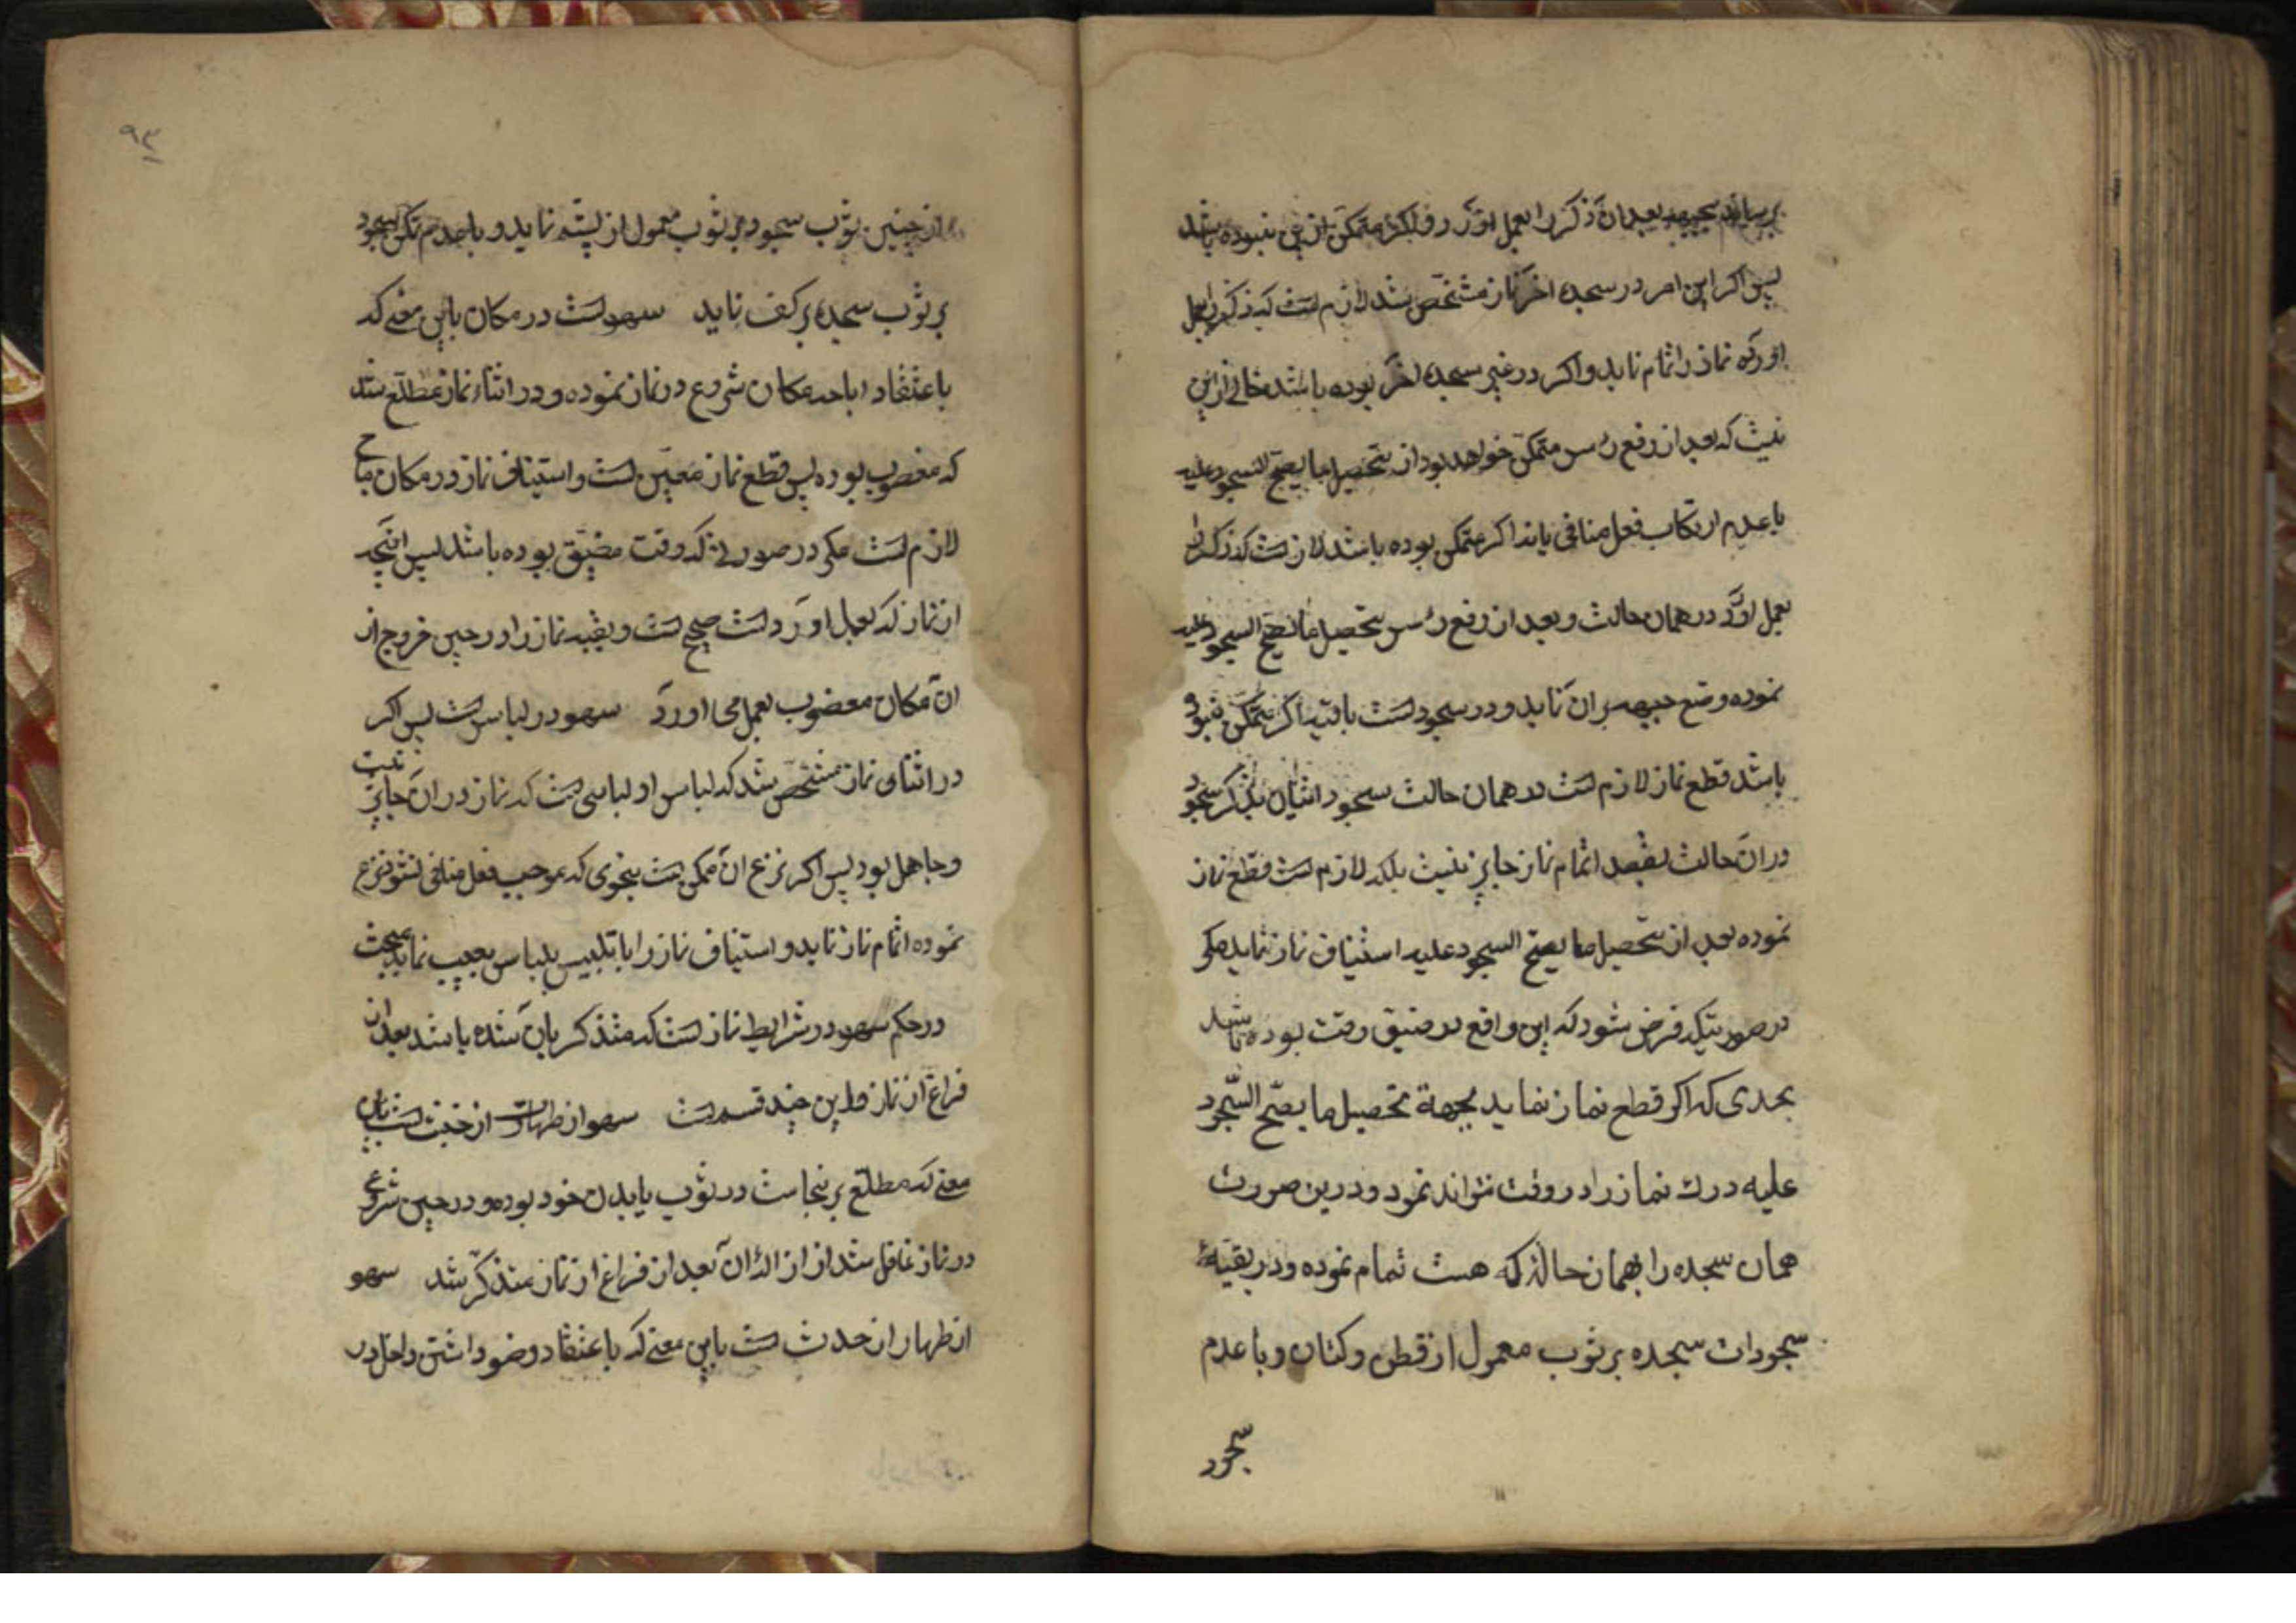 بعد از ان ذکر را بعمل اورد و اگر متمکن ازین نبوده باشد
پس اکر این امر در سجده اخر نماز مشخص شد لازمست که ذکر را بعمل
اورده نماز را تمام نماید و اکر در غیر سجده اخر بوده باشد خالی ازین
نیست که بعد از رفع رأس متمکن خواهد بود از تحصیل ما یصح السجود علیه
با عدم ارتکاب فعل منافی یا نه اکر متمکن بوده باشد لازمست که ذکر را
بعمل اورد در همان حالت و بعد از رفع رأس تحصیل ما یصح السجود علیه
نموده وضع جبهه بر ان نماید و در سجودات باقیه اکر متمکن نبوده
باشد قطع نماز لازم است در همان حالت سجود اتیان بذکر سجود
در ان حالت بقصد اتمام نماز جایز نیست بلکه لازم است قطع نماز
نموده بعد از تحصیل ما یصح السجود علیه استیناف نماز نماید مکر
در صورتیکه فرض شود که این واقع در ضیق وقت بوده باشد
بحدی که اکر قطع نماز نماید بجهة تحصیل ما یصح السّجود
علیه درك نماز را در وقت نتواند نمود و درین صورت
همان سجده را بهمان حالة که هست تمام نموده و در بقیهٔ
سجودات سجده بر ثوب معمول از قطن و کتان و با عدم
سجود
۹۳
از چنین ثوب سجود بر ثوب معمول از پشم نماید و با عدم تمکن سجود
بر ثوب سجده بر کف نماید سهوست در مکان باین معنے که
باعتقاد اباحه مکان شروع در نماز نموده و در اثناء نماز مطلع شد
که مغصوب بوده پس قطع نماز معین است و استیناف نماز در مکان مباح
لازم است مکر در صورتے که وقت مضیق بوده باشد پس انچه
از نماز که بعمل اورد است صحیح است و بقیه نماز را در حین خروج از
ان مکان مغصوب بعمل می اورد سهو در لباس است پس اکر
در اثنای نماز مشخص شد که لباس او لباسی است که نماز در ان جایز نیست
و جاهل بود پس اکر نزع ان ممکن است بنحوی که موجب فعل منافی نشود نزع
نموده اتمام نماز نماید و استیناف نماز را با تلبیس بلباس نماید مبحث
در حکم سهو در شرایط نماز است که متذکر بان شده باشد بعد از
فراغ از نماز و این چند قسم است سهو از طهارت از خبث است باین
معنے که مطلع بر نجاست در ثوب یا بدن خود بوده و در حین شروع
در نماز غافل شد از ازالهٔ ان بعد از فراغ از نماز متذکر شد سهو
از طهار از حدث است باین معنے که باعتقاد وضو داشتن داخل در